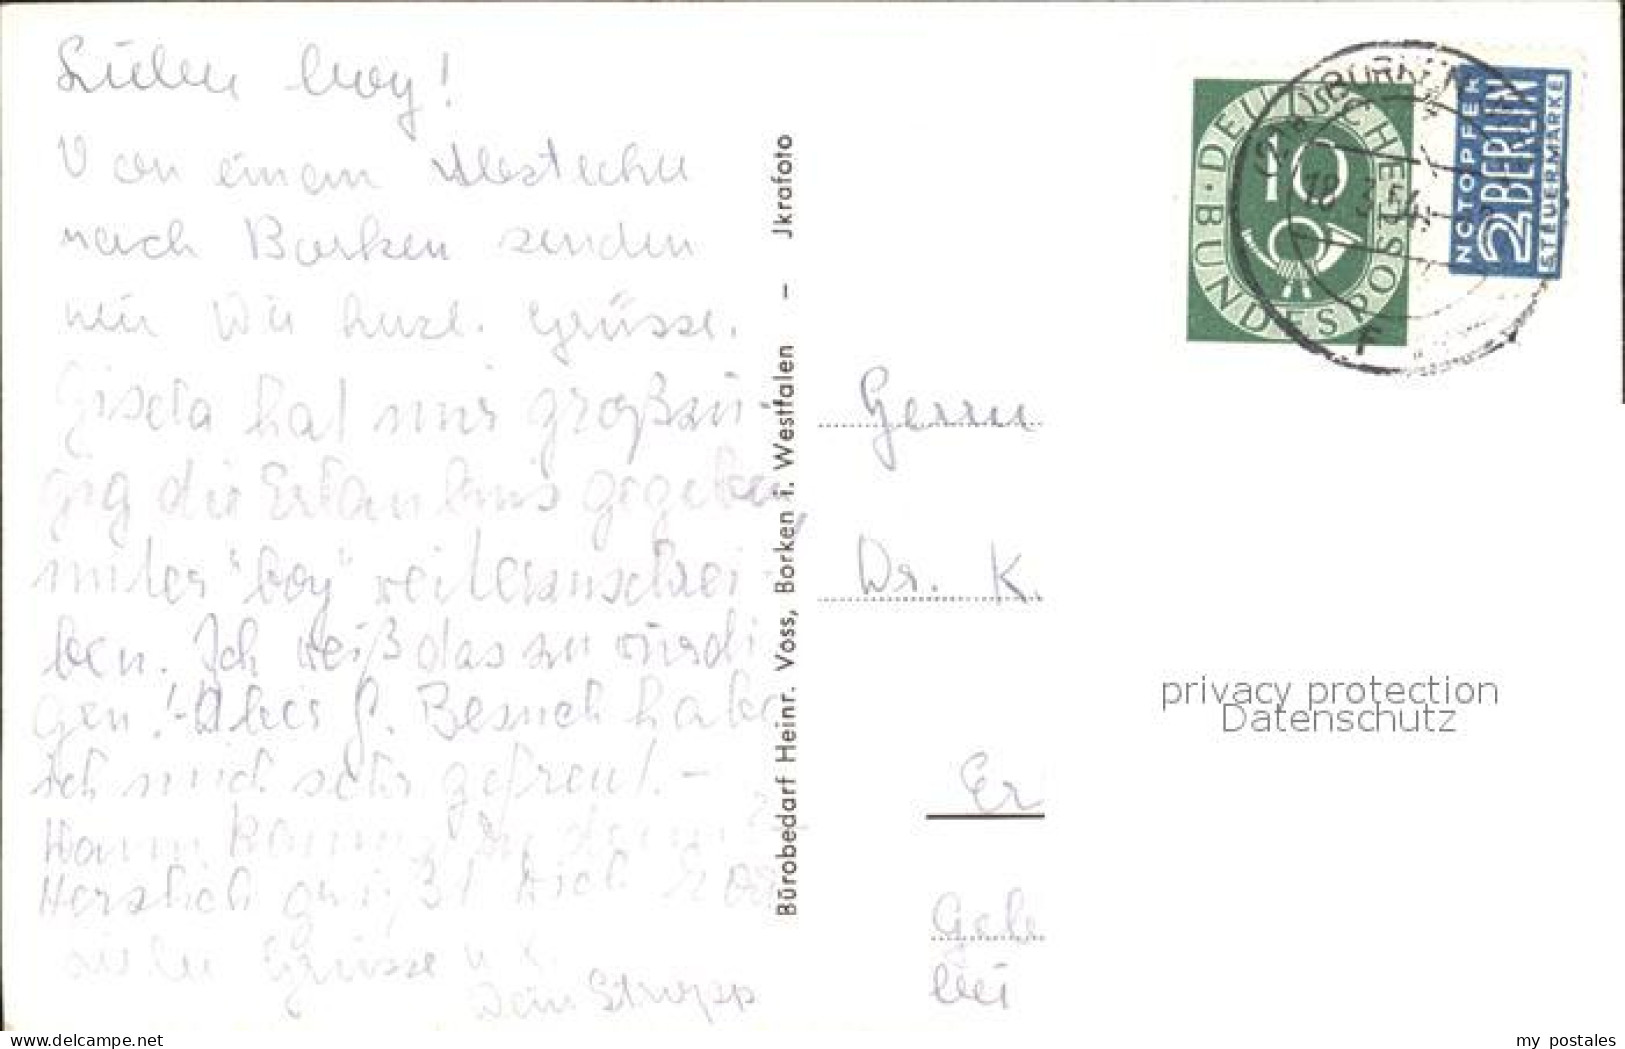 Lieber boy!
Von einem Abstecher
nach Borken senden
wir Dir herzl. Grüsse.
Gisela hat mir großzü-
gig die Erlaubnis gegeben,
unter "boy" weiterzuschrei-
ben. Ich weiß das zu würdi
gen! - Über d. Besuch habe
ich mich sehr gefreut. -
Wann kommst Du dann?
Herzlich grüßt Dich
viele Grüsse
Dein Strupp
Bürobedarf Heinr. Voss, Borken i. Westfalen - Jkrafoto
DEUTSCHE BUNDESPOST
10
BORKEN
18.3.54
NOTOPFER
2 BERLIN
STEUERMARKE
Herrn
Dr. K.
Er
Gele
bei
privacy protection
Datenschutz
www.delcampe.net
my_postales